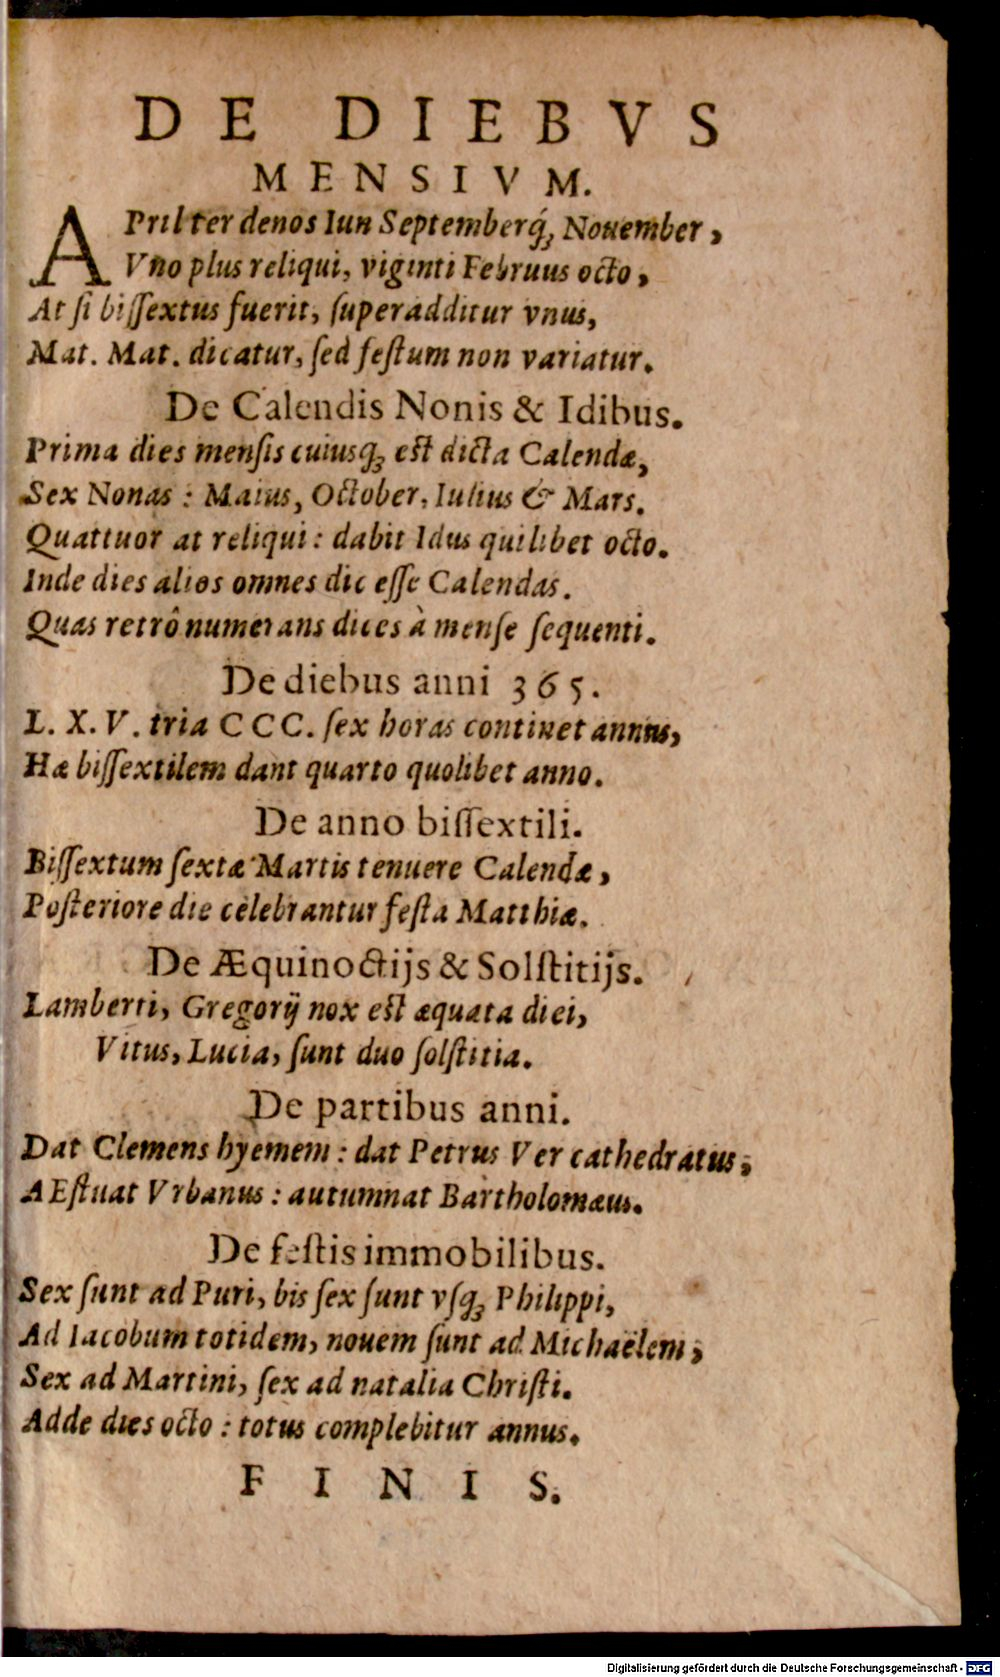 DE DIEBVS
MENSIVM.
APril ter denos Iun Septemberq́ꝫ Nouember,
Vno plus reliqui, viginti Februus octo,
At ſi biſſextus fuerit, ſuperadditur vnus,
Mat. Mat. dicatur, ſed feſtum non variatur.
De Calendis Nonis & Idibus.
Prima dies menſis cuiusqꝫ eſt dicta Calendæ,
Sex Nonas : Maius, October, Iulius & Mars.
Quattuor at reliqui : dabit Idus quilibet octo.
Inde dies alios omnes dic eſſe Calendas.
Quas retrô numerans dices à menſe ſequenti.
De diebus anni 365.
L. X. V. tria CCC. ſex horas continet annus,
Hæ biſſextilem dant quarto quolibet anno.
De anno biſſextili.
Biſſextum ſextæ Martis tenuere Calendæ,
Poſteriore die celebrantur feſta Matthiæ.
De Æquinoctijs & Solſtitijs.
Lamberti, Gregorij nox eſt æquata diei,
Vitus, Lucia, ſunt duo ſolſtitia.
De partibus anni.
Dat Clemens hyemem : dat Petrus Ver cathedratus,
AEſtuat Vrbanus : autumnat Bartholomæus.
De feſtis immobilibus.
Sex ſunt ad Puri, bis ſex ſunt vſqꝫ Philippi,
Ad Iacobum totidem, nouem ſunt ad Michaëlem,
Sex ad Martini, ſex ad natalia Chriſti.
Adde dies octo : totus complebitur annus.
FINIS.
Digitalisierung gefördert durch die Deutsche Forschungsgemeinschaft - DFG